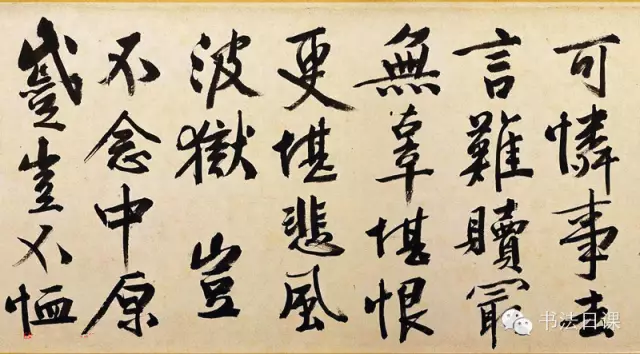 可憐事去
言難贖冣
無辜堪恨
更堪悲風
波獄豈
不念中原
蹙豈不恤
书法日课